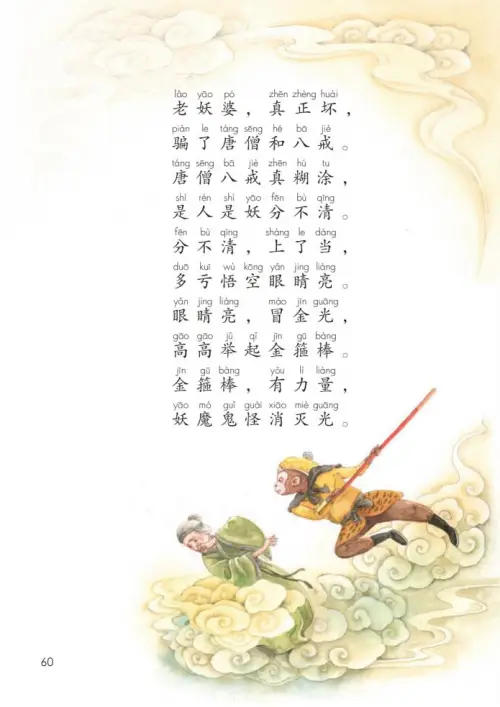 lǎo yāo pó zhēn zhèng huài
老妖婆，真正坏，
piàn le táng sēng hé bā jiè
骗了唐僧和八戒。
táng sēng bā jiè zhēn hú tu
唐僧八戒真糊涂，
shì rén shì yāo fēn bù qīng
是人是妖分不清。
fēn bù qīng shàng le dàng
分不清，上了当，
duō kuī wù kōng yǎn jing liàng
多亏悟空眼睛亮。
yǎn jing liàng mào jīn guāng
眼睛亮，冒金光，
gāo gāo jǔ qǐ jīn gū bàng
高高举起金箍棒。
jīn gū bàng yǒu lì liàng
金箍棒，有力量，
yāo mó guǐ guài xiāo miè guāng
妖魔鬼怪消灭光。
60